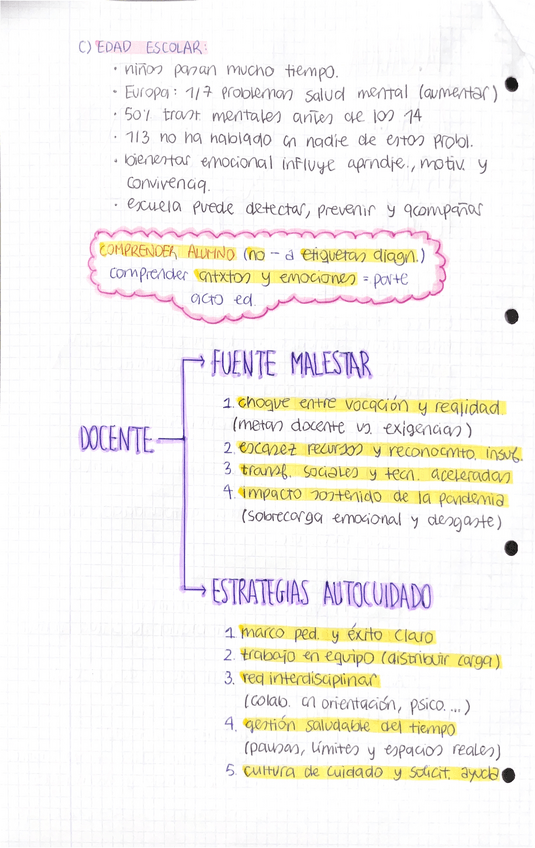 C) EDAD ESCOLAR:
· niños pasan mucho tiempo.
· Europa: 1/7 problemas salud mental (aumentar)
· 50% trast. mentales antes de los 14
· 1/3 no ha hablado cn nadie de estos probl.
· bienestar emocional influye aprndje., motiv. y
convivencia.
· escuela puede detectar, prevenir y acompañar
COMPRENDER ALUMNO (no - a etiquetas diagn.)
comprender cntxtos y emociones = parte
acto ed.
FUENTE MALESTAR
1. choque entre vocación y realidad
(metas docente vs. exigencias)
2. escasez recursos y reconocmto. insuf.
3. transf. sociales y tecn. aceleradas
4. impacto sostenido de la pandemia
(sobrecarga emocional y desgaste)
DOCENTE
ESTRATEGIAS AUTOCUIDADO
1. marco ped. y éxito claro
2. trabajo en equipo (distribuir carga)
3. red interdisciplinar
(colab. cn orientación, psico....)
4. gestión saludable del tiempo
(pausas, límites y espacios reales)
5. cultura de cuidado y solicit. ayuda